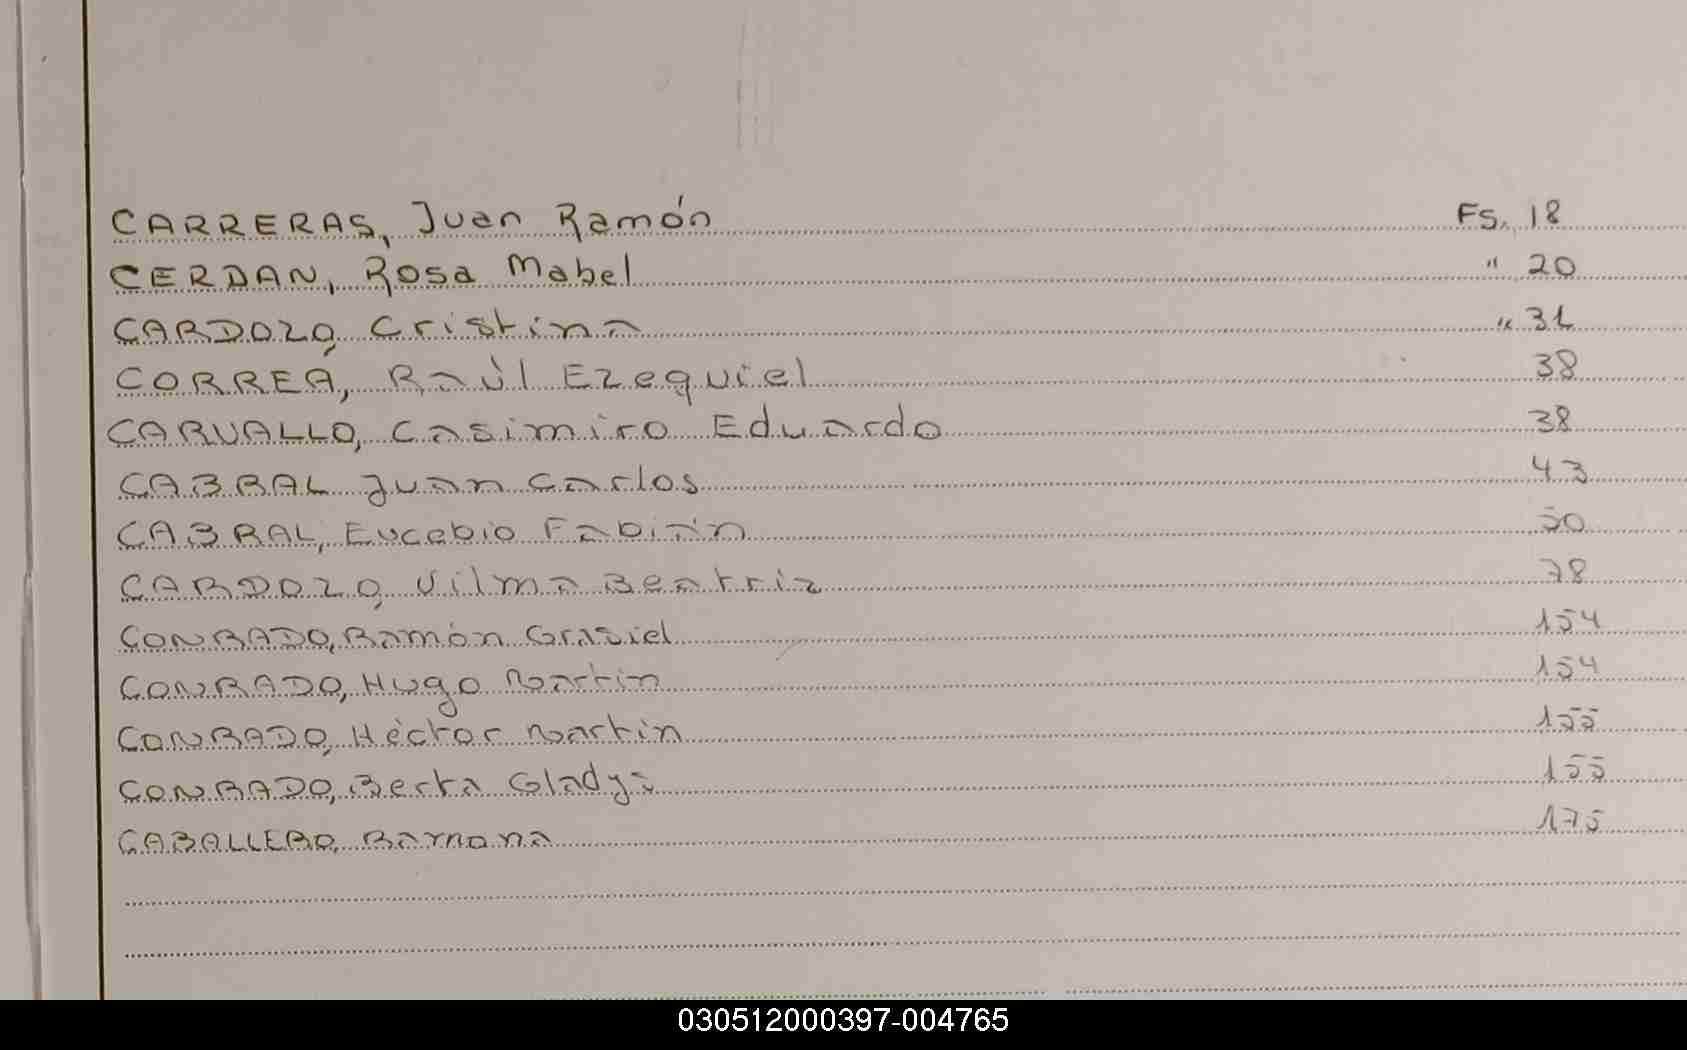 CARRERAS, Juan Ramón Fs. 18
CERDAN, Rosa Mabel " 20
CARDOZO, Cristina " 31
CORREA, Raúl Ezequiel 38
CARVALLO, Casimiro Eduardo 38
CABRAL Juan Carlos 43
CABRAL, Eucebio Fabián 50
CARDOZO, Vilma Beatriz 78
CONRADO, Ramón Grasiel 154
CONRADO, Hugo Martín 154
CONRADO, Héctor Martín 155
CONRADO, Berta Gladys 155
CABALLERO, Ramona 175
030512000397-004765